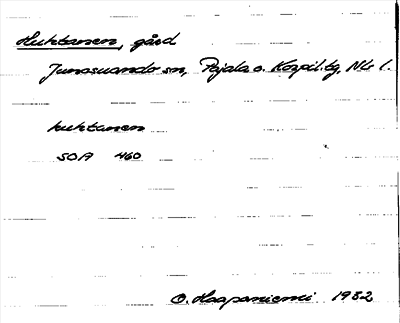 Huhtanen, gård
Junosuando sn, Pajala o. Korpil. tg, Nb l.
huhtanen
SOA 460
O. Haapaniemi 1932